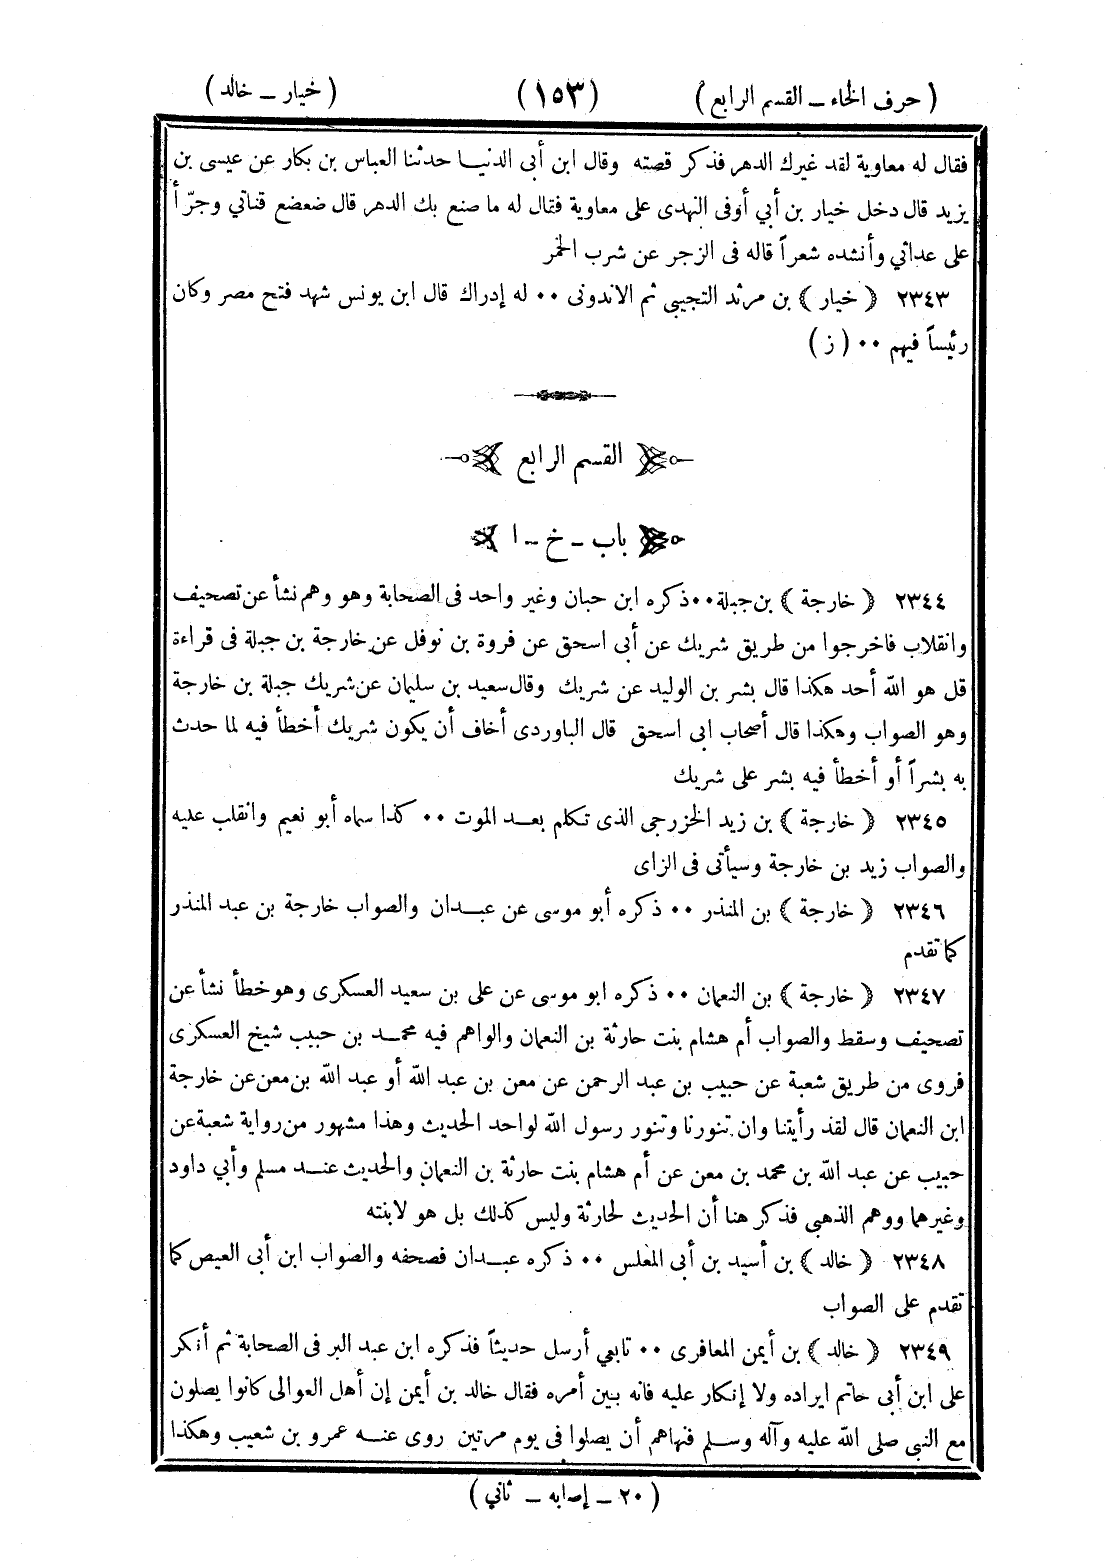 ( حرف الخاء – القسم الرابع ) (١٥٣) ( خيار – خالد )
فقال له معاوية لقد غيرك الدهر فذكر قصته وقال ابن أبى الدنيا حدثنا العباس بن بكار عن عيسى بن
يزيد قال دخل خيار بن أبي أوفى النهدى على معاوية فقال له ما صنع بك الدهر قال ضعضع قناتي وجرّأ
على عداتي وأنشده شعراً قاله فى الزجر عن شرب الخمر
٢٣٤٣ ﴿ خيار ﴾ بن مرثد التجيبي ثم الاندونى ٠٠ له إدراك قال ابن يونس شهد فتح مصر وكان
رئيساً فيهم ٠٠ ( ز )
القسم الرابع
باب – خ – ا
٢٣٤٤ ﴿ خارجة ﴾ بن جبلة ٠٠ ذكره ابن حبان وغير واحد فى الصحابة وهو وهم نشأ عن تصحيف
وانقلاب فاخرجوا من طريق شريك عن أبى اسحق عن فروة بن نوفل عن خارجة بن جبلة فى قراءة
قل هو الله أحد هكذا قال بشر بن الوليد عن شريك وقال سعيد بن سليمان عن شريك جبلة بن خارجة
وهو الصواب وهكذا قال أصحاب ابى اسحق قال الباوردى أخاف أن يكون شريك أخطأ فيه لما حدث
به بشراً أو أخطأ فيه بشر على شريك
٢٣٤٥ ﴿ خارجة ﴾ بن زيد الخزرجى الذى تكلم بعد الموت ٠٠ كذا سماه أبو نعيم وانقلب عليه
والصواب زيد بن خارجة وسيأتى فى الزاى
٢٣٤٦ ﴿ خارجة ﴾ بن المنذر ٠٠ ذكره أبو موسى عن عبدان والصواب خارجة بن عبد المنذر
كما تقدم
٢٣٤٧ ﴿ خارجة ﴾ بن النعمان ٠٠ ذكره ابو موسى عن على بن سعيد العسكرى وهو خطأ نشأ عن
تصحيف وسقط والصواب أم هشام بنت حارثة بن النعمان والواهم فيه محمد بن حبيب شيخ العسكرى
فروى من طريق شعبة عن حبيب بن عبد الرحمن عن معن بن عبد الله أو عبد الله بن معن عن خارجة
ابن النعمان قال لقد رأيتنا وان تنورنا وتنور رسول الله لواحد الحديث وهذا مشهور من رواية شعبة عن
حبيب عن عبد الله بن محمد بن معن عن أم هشام بنت حارثة بن النعمان والحديث عند مسلم وأبي داود
وغيرهما ووهم الذهبي فذكر هنا أن الحديث لحارثة وليس كذلك بل هو لابنته
٢٣٤٨ ﴿ خالد ﴾ بن أسيد بن أبى المغلس ٠٠ ذكره عبدان فصحفه والصواب ابن أبى العيص كما
تقدم على الصواب
٢٣٤٩ ﴿ خالد ﴾ بن أيمن المعافرى ٠٠ تابعي أرسل حديثاً فذكره ابن عبد البر فى الصحابة ثم أنكر
على ابن أبى حاتم ايراده ولا إنكار عليه فانه بين أمره فقال خالد بن أيمن إن أهل العوالى كانوا يصلون
مع النبى صلى الله عليه وآله وسلم فنهاهم أن يصلوا فى يوم مرتين روى عنه عمرو بن شعيب وهكذا
( ٢٠ – إصابه – ثاني )